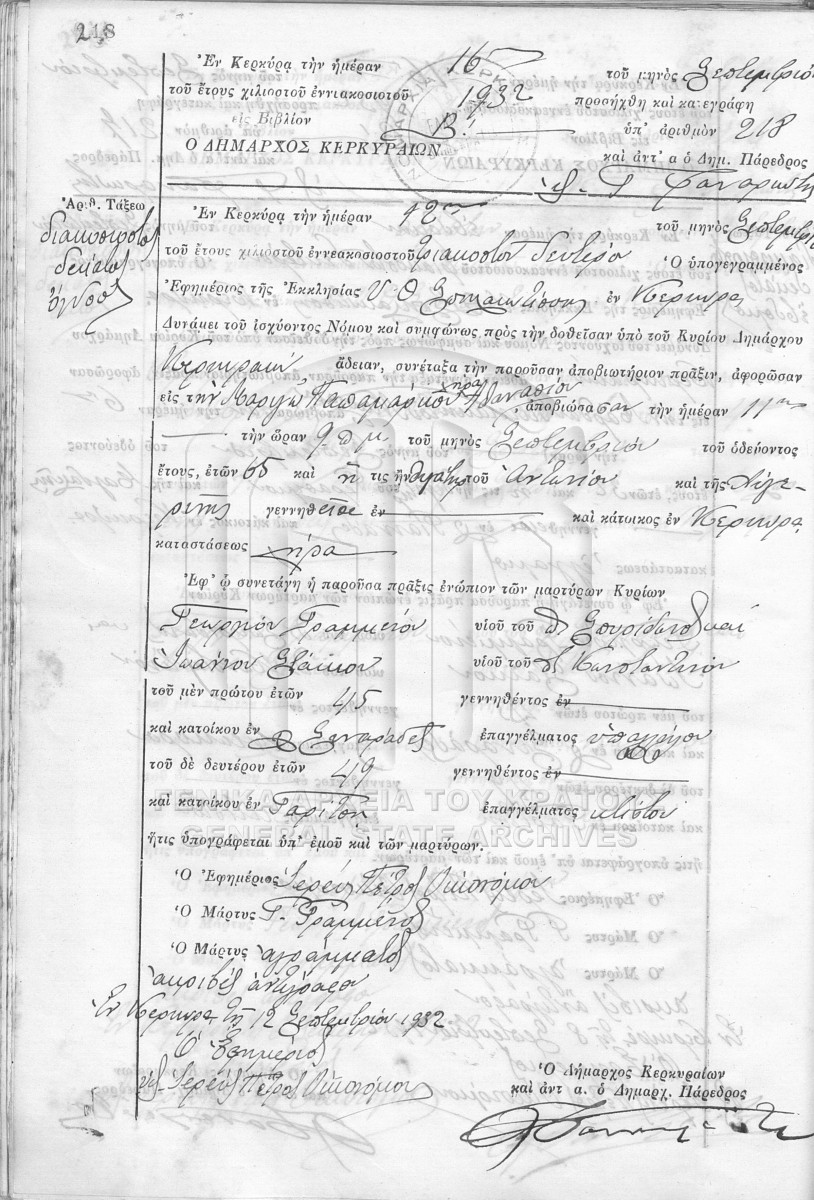 218
Ἐν Κερκύρᾳ τὴν ἡμέραν 16 τοῦ μηνὸς Σεπτεμβρίου
τοῦ ἔτους χιλιοστοῦ ἐννιακοσιοστοῦ 1932 προσήχθη καὶ κατεγράφη
εἰς Βιβλίον Β! ὑπ' ἀριθμὸν 218
Ὁ ΔΗΜΑΡΧΟΣ ΚΕΡΚΥΡΑΙΩΝ
καὶ ἀντ' α ὁ Δημ. Πάρεδρος
Ἀρ.θ. Τάξεω
διακοσιοστὸς
δέκατος
ὄγδοος
Ἐν Κερκύρᾳ τὴν ἡμέραν 12ην τοῦ μηνὸς Σεπτεμβρίου
τοῦ ἔτους χιλιοστοῦ ἐννεακοσιοστοῦ τριακοστοῦ δευτέρου Ὁ ὑπογεγραμμένος
Ἐφημέριος τῆς Ἐκκλησίας Υ Θ Σπηλαιωτίσσης ἐν Κερκύρᾳ
Δυνάμει τοῦ ἰσχύοντος Νόμου καὶ συμφώνως πρὸς τὴν δοθεῖσαν ὑπὸ τοῦ Κυρίου Δημάρχου
Κερκυραίων ἄδειαν, συνέταξα τὴν παροῦσαν ἀποβιωτήριον πρᾶξιν, ἀφορῶσαν
εἰς τὴν Μαργώ Παπαμάρκου χήρα Ἀθανασίου, ἀποβιώσασαν τὴν ἡμέραν 11ην
τὴν ὥραν 9 π μ τοῦ μηνὸς Σεπτεμβρίου τοῦ ὁδεύοντος
ἔτους, ἐτῶν 65 καὶ ἥ τις ἦν θυγάτηρ τοῦ Ἀντωνίου καὶ τῆς Αὐγε-
ρινῆς γεννηθεῖσα ἐν καὶ κάτοικος ἐν Κερκύρᾳ
καταστάσεως χήρα
Ἐφ' ᾧ συνετάγη ἡ παροῦσα πρᾶξις ἐνώπιον τῶν μαρτύρων Κυρίων
Γεωργίου Γραμμένου υἱοῦ τοῦ Σπυρίδωνος καὶ
Ἰωάννου υἱοῦ τοῦ Κωνσταντίνου
τοῦ μὲν πρώτου ἐτῶν 45 γεννηθέντος ἐν
καὶ κατοίκου ἐν Σιναράδες ἐπαγγέλματος ὑπαλλήλου
τοῦ δὲ δευτέρου ἐτῶν 49 γεννηθέντος ἐν
καὶ κατοίκου ἐν Γαρίτσῃ ἐπαγγέλματος κτίστου
ΓΕΝΙΚΑ ΑΡΧΕΙΑ ΤΟΥ ΚΡΑΤΟΥΣ
GENERAL STATE ARCHIVES
ἥτις ὑπογράφεται ὑπ' ἐμοῦ καὶ τῶν μαρτύρων.
Ὁ Ἐφημέριος Ἱερεὺς Πέτρος Οἰκονόμου
Ὁ Μάρτυς Γ. Γραμμένος
Ὁ Μάρτυς ἀγράμματος
ἀκριβὲς ἀντίγραφον
Ἐν Κερκύρᾳ τῇ 12 Σεπτεμβρίου 1932
Ὁ Ἐφημέριος
Ἱερεὺς Πέτρος Οἰκονόμου
Ὁ Δήμαρχος Κερκυραίων
καὶ ἀντ α. ὁ Δημαρχ. Πάρεδρος